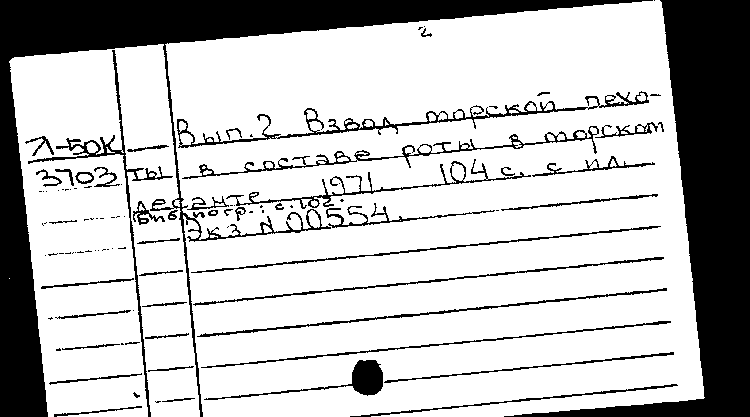 2
Вып. 2 Взвод морской пехо-
Л-50К
ты в составе роты в морском
3703
десанте. 1971. 104 с. с ил.
Библиогр.: с. 102.
Экз N 00554.